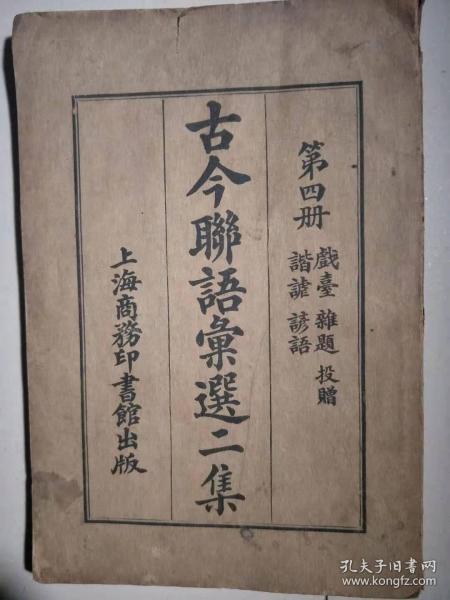 第四册
戲臺 雜題 投贈
諧謔 諺語
古今聯語彙選二集
上海商務印書館出版
孔夫子旧书网
www.kongfz.com